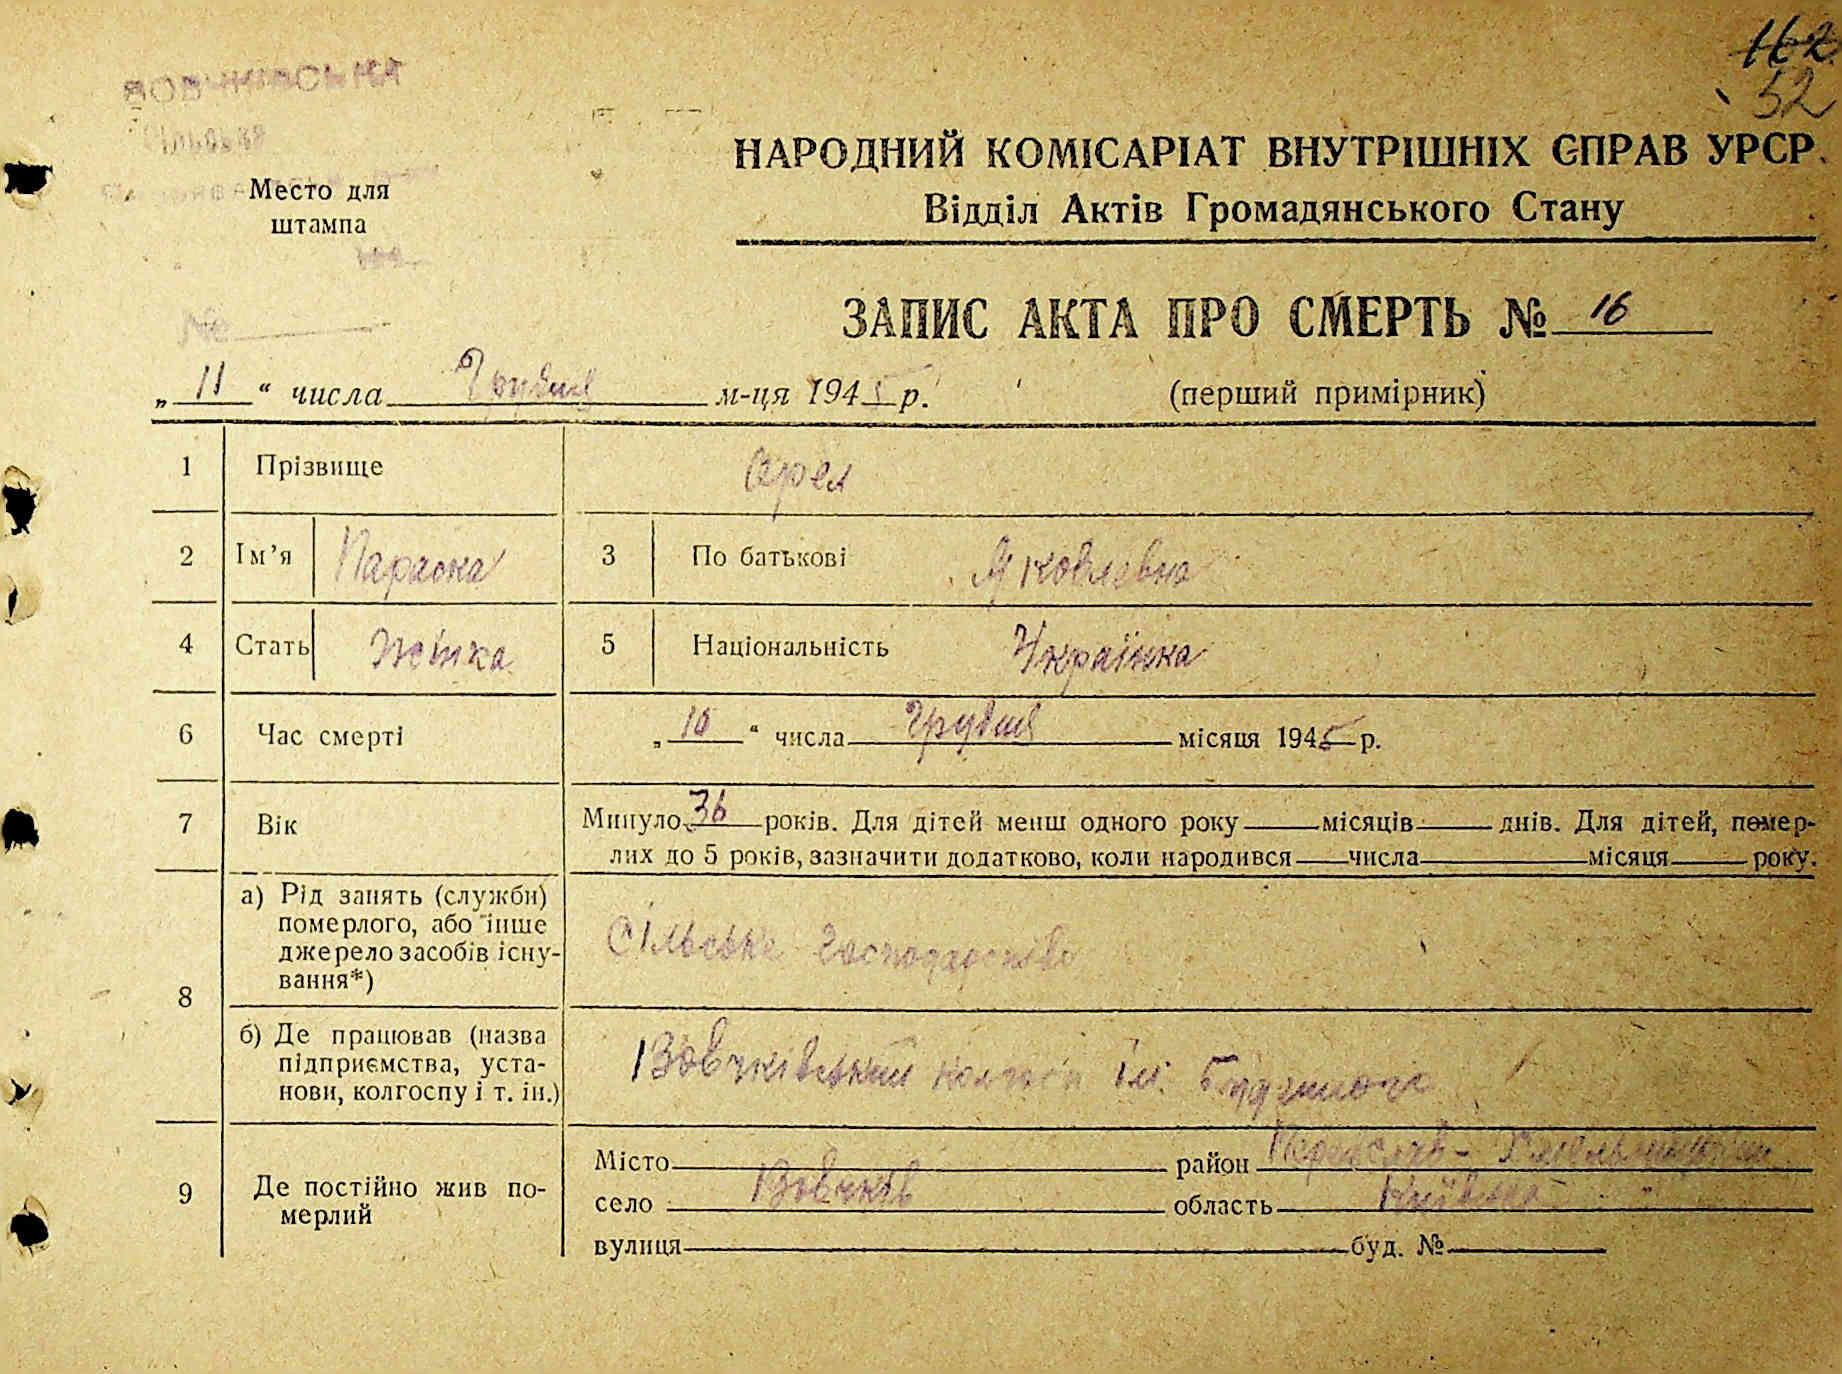 162
52
ВОВЧКІВСЬКА
Сільська
Место для
штампа
194
№
НАРОДНИЙ КОМІСАРІАТ ВНУТРІШНІХ СПРАВ УРСР
Відділ Актів Громадянського Стану
ЗАПИС АКТА ПРО СМЕРТЬ № 16
„ 11 “ числа Грудня м-ця 1945 р. (перший примірник)
1 Прізвище Орел
2 Ім’я Параска 3 По батькові Яковлевна
4 Стать Жінка 5 Національність Українка
6 Час смерті „ 10 “ числа Грудня місяця 1945 р.
7 Вік Минуло 36 років. Для дітей менш одного року місяців днів. Для дітей, помер-
лих до 5 років, зазначити додатково, коли народився числа місяця року.
8 а) Рід занять (служби)
померлого, або інше
джерело засобів існу-
вання*)
Сільське господарство
б) Де працював (назва
підприємства, уста-
нови, колгоспу і т. ін.)
Вовчківський колгосп ім.
9 Де постійно жив по-
мерлий
Місто район Переяслав-Хмельницький
село Вовчків область Київська
вулиця буд. №